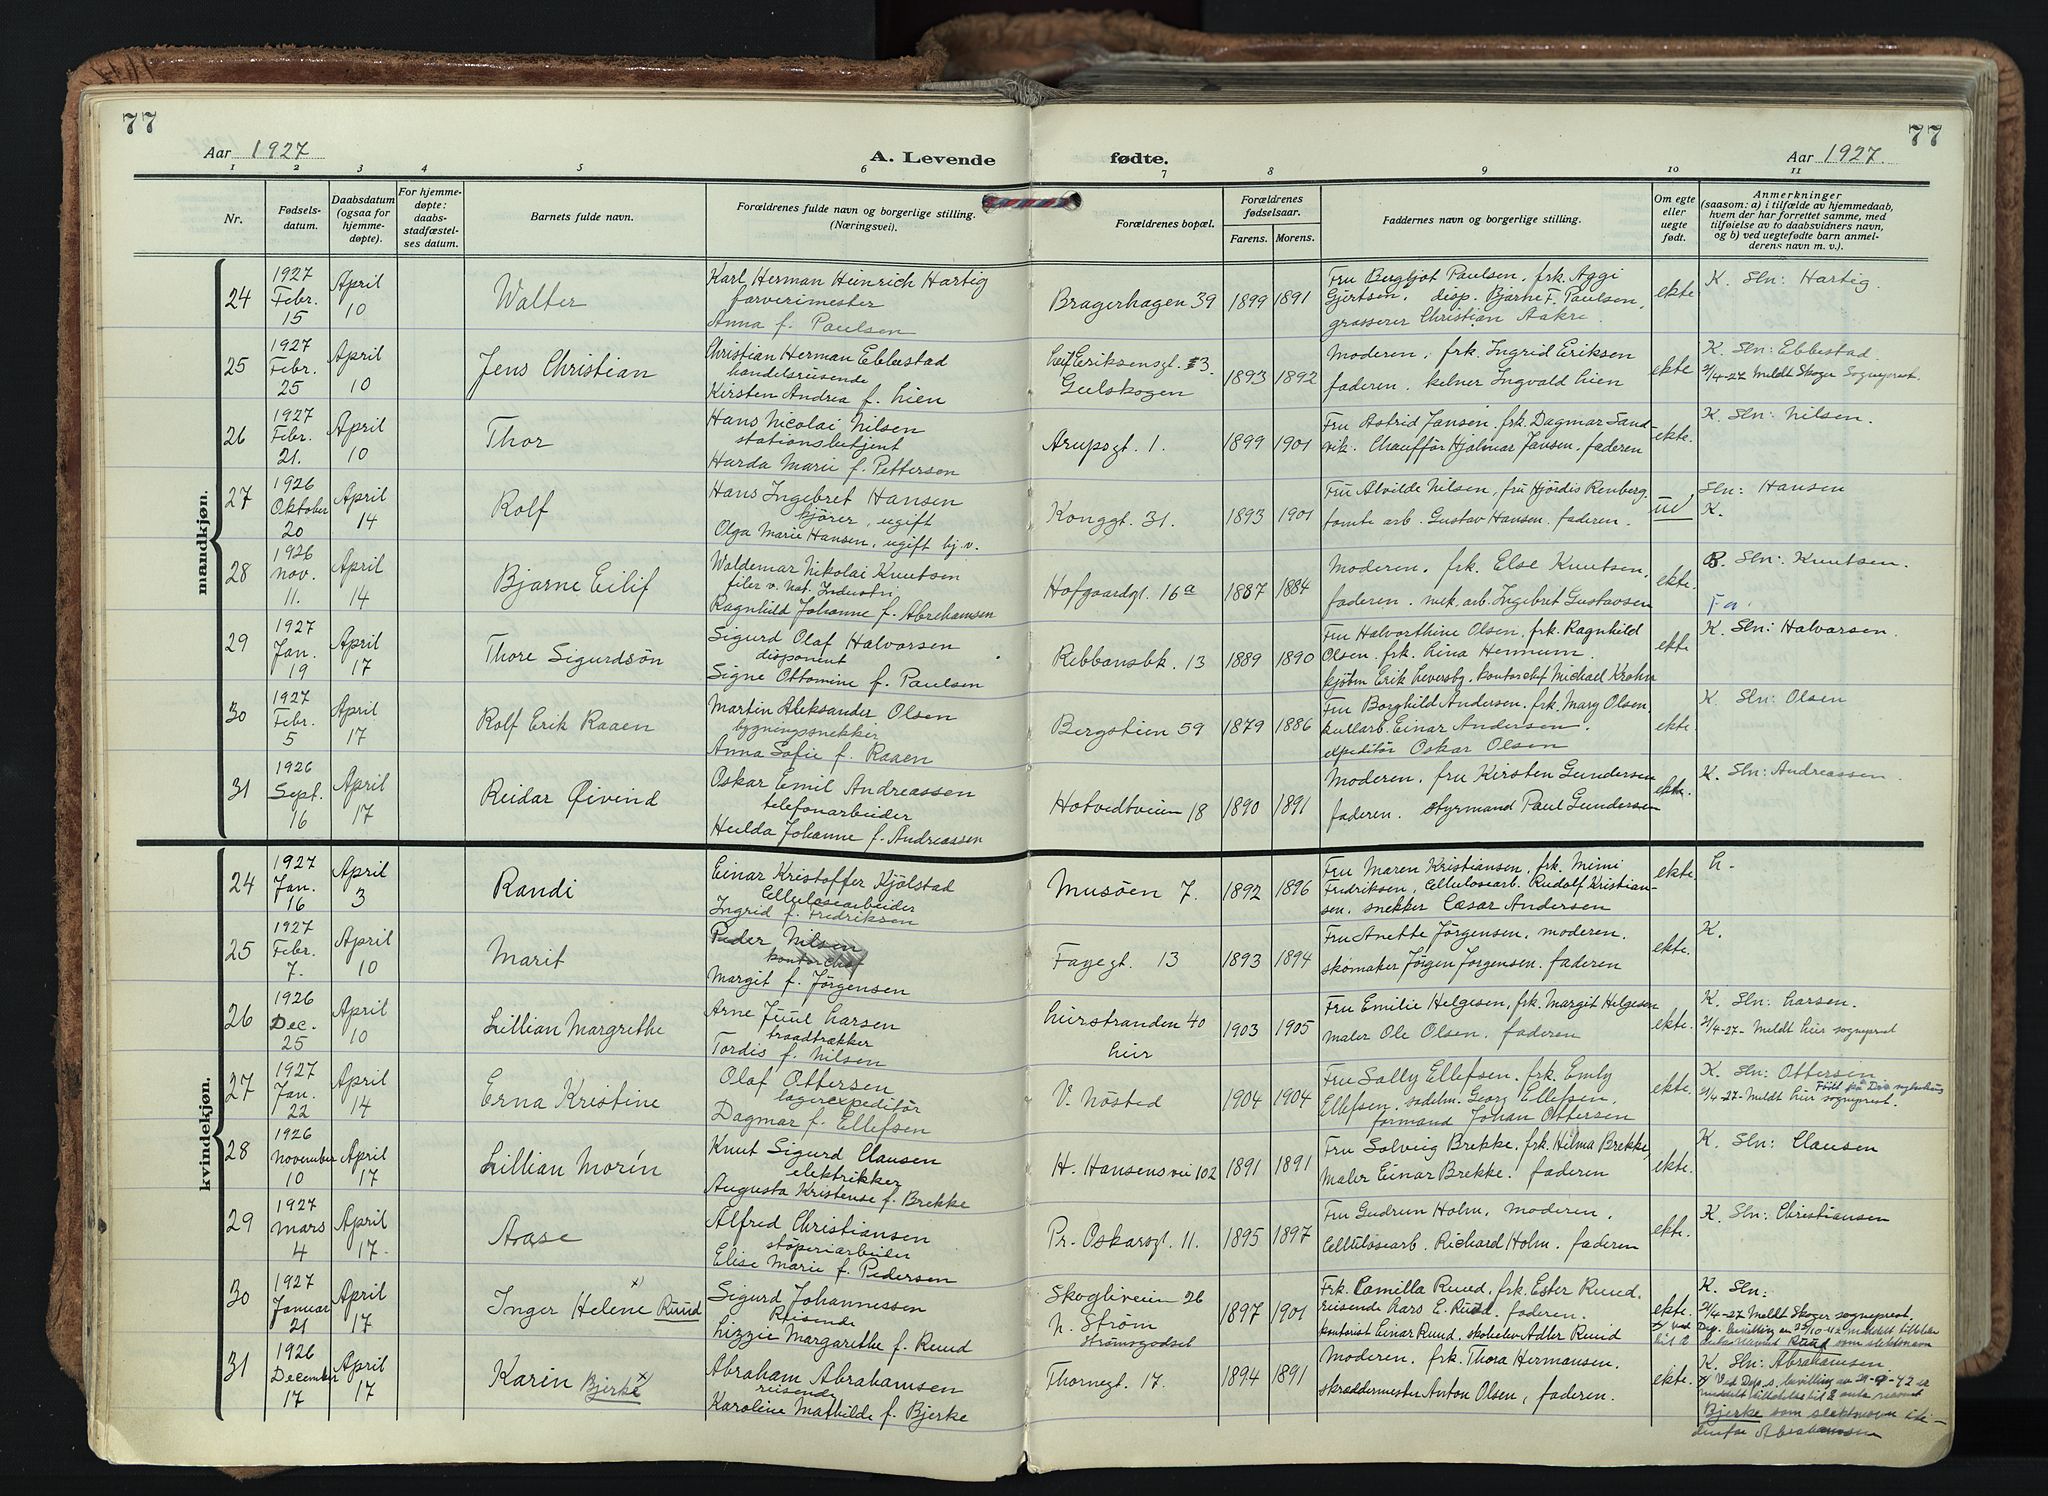 77
77
Aar 1927
A. Levende
fødte.
Aar 1927.
1 2 3 4 5 6 7 8 9 10 11
Nr.
Fødsels-
datum.
Daabsdatum
(ogsaa for
hjemme-
døpte).
For hjemme-
døpte:
daabs-
stadfæstel-
ses datum.
Barnets fulde navn.
Forældrenes fulde navn og borgerlige stilling.
(Næringsvei).
Forældrenes bopæl.
Forældrenes
fødselsaar.
Farens. Morens.
Faddernes navn og borgerlige stilling.
Om egte
eller
uegte
født.
Anmerkninger
(saasom: a) i tilfælde av hjemmedaab,
hvem der har forrettet samme, med
tilføielse av to daabsvidners navn,
og b) ved uegtefødte barn anmel-
derens navn m. v.).
mandkjøn.
24
1927
Febr.
15
April
10
Walter
Karl Herman Heinrich Hartig
farverimester
Anna f. Paulsen
Bragerhagen 39
1899 1891
Fru Bergljot Paulsen, frk. Aggi
Gjertsen, disp. Bjarne F. Paulsen,
grosserer Christian Aakre.
ekte
K. Sln: Hartig.
25
1927
Febr.
25
April
10
Jens Christian
Christian Herman Ebbestad
handelsreisende
Kirsten Andrea f. Lien
Eriksensgt. 3.
Gulskogen
1893 1892
Moderen, frk. Ingrid Eriksen
faderen. kelner Ingvald Lien
ekte.
K. Sln: Ebbestad.
2/4-27 Meldt Skoger Sogneprest.
26
1927
Febr.
21.
April
10
Thor
Hans Nicolai Nilsen
stationsbetjent
Harda Marie f. Pettersen
Arupsgt. 1.
1899 1901
Fru Astrid Jansen, frk. Dagmar Sand-
vik. Chauffør Hjalmar Jansen, faderen
ekte.
K. Sln: Nilsen.
27
1926
Oktober
20
April
14
Rolf
Hans Ingebret Hansen
kjører, ugift
Olga Marie Hansen, ugift hj. v.
Konggt. 31.
1893 1901
Fru Alvilde Nilsen, fru Hjördis Renberg.
tomte arb. Gustav Hansen. faderen.
ue
Sln: Hansen
K.
28
1926
Nov.
11.
April
14
Bjarne Eilif
Waldemar Nikolai Knutsen
filer v. Nat. Industri
Ragnhild Johanne f. Abrahamsen
Hofgaardgt. 16a
1887 1884
Moderen, frk. Else Knutsen,
faderen. mek. arb. Ingebret Gustavsen
ekte.
B. Sln: Knutsen.
29
1927
Jan.
19
April
17
Thore Sigurdsön
Sigurd Olaf Halvorsen
disponent
Signe Ottomine f. Paulsen
Ribbansbk. 13
1889 1890
Fru Halvorthine Olsen, frk. Ragnhild
Olsen, frk. Lina Hennum.
kjøbm Erik Leversby, kontorchef Michael Krohn
ekte
Fa.
K. Sln: Halvorsen.
30
1927
Febr.
5
April
17
Rolf Erik Raaen
Martin Aleksander Olsen
bygningssnekker
Anna Sofie f. Raaen
Bergstien 59
1879 1886
Fru Borghild Andersen, frk. Mary Olsen,
kullarb. Einar Andersen.
expeditör Oskar Olsen
ekte.
K. Sln: Olsen
31
1926
Sept.
16
April
17
Reidar Øivind
Oskar Emil Andreassen
telefonarbeider
Hulda Johanne f. Andreassen
Hotvedtveien 18
1890 1891
Moderen, fru Kirsten Gundersen
faderen. styrmand Paul Gundersen
ekte.
K. Sln: Andreassen.
kvindekjøn.
24
1927
Jan.
16
April
3
Randi
Einar Kristoffer Kjölstad
Cellulosearbeider
Ingrid f. Fredriksen
Musöen 7.
1892 1896
Fru Maren Kristiansen, frk. Mimi
Fredriksen, Cellulosearb. Rudolf Kristian-
sen. snekker Cæsar Andersen
ekte.
L.
25
1927
Febr.
7.
April
10
Marit
Peder Nilsen
kontorchef
Margit f. Jörgensen
Fayegt. 13
1893 1894
Fru Anette Jörgensen, moderen.
skomaker Jörgen Jörgensen. faderen
ekte.
K.
26
1926
Dec.
25
April
10
Lillian Margrethe
Arne Juul Larsen
traadtrækker
Tordis f. Nilsen
Lierstranden 40
Lier
1903 1905
Fru Emilie Helgesen, frk. Margit Helgesen
maler Ole Olsen, faderen
ekte.
K. Sln: Larsen.
2/4-27- Meldt Lier sogneprest
27
1927
Jan.
22
April
14
Erna Kristine
Olaf Ottersen
lagerexpeditör
Dagmar f. Ellefsen
V. Nösted
1904 1904
Fru Sally Ellefsen. frk. Emly
Ellefsen. sadelm. Georg Ellefsen.
formand Johan Ottersen
ekte.
K. Sln: Ottersen
Født på Dra sykehus
2/4-27- Meldt Lier sogneprest.
28
1926
November
10
April
17
Lillian Morén
Knut Sigurd Clausen
elektrikker
Augusta Kristense f. Brekke
H. Hansens vei 102
1891 1891
Fru Solveig Brekke, frk. Hilma Brekke,
Maler Einar Brekke. faderen
ekte.
K. Sln: Clausen
29
1927
Mars
4
April
17.
Aase
Alfred Christiansen
støperiarbeider
Elise Marie f. Pedersen
Pr. Oskarsgt. 11.
1895 1897
Fru Gudrun Holm, moderen.
Cellulosearb. Richard Holm, faderen
ekte.
K. Sln: Christiansen
30
1927
Januar
21
April
17
Inger Helene x) Ruud
Sigurd Johannessen
Reisende
Lizzie Margarethe f. Ruud
Skogliveien 26
N. Strøm
Strømsgodset
1897 1901
Frk. Camilla Ruud, frk. Ester Ruud,
reisende Lars E. Ruud, faderen.
kontorist Einar Ruud, skoleelev Adler Ruud
ekte.
K. Sln:
2/4-27 Meldt Skoger sogneprest.
x) ved Dep. bevilling av 23/10-42 meddelt tillatelse
til å anta navnet Ruud som slektsnavn
31
1926
December
17
April
17
Karin Bjerke x)
Abraham Abrahamsen
reisende
Karoline Mathilde f. Bjerke
Thornegt. 17.
1894 1891
Moderen, frk. Thora Hermansen.
skræddermester Anton Olsen, faderen.
ekte.
K. Sln: Abrahamsen
x) Ved Dep.s bevilling av 29-9-42 er
meddelt tillatelse til å anta navnet
Bjerke som slektnavn iste-
denfor Abrahamsen